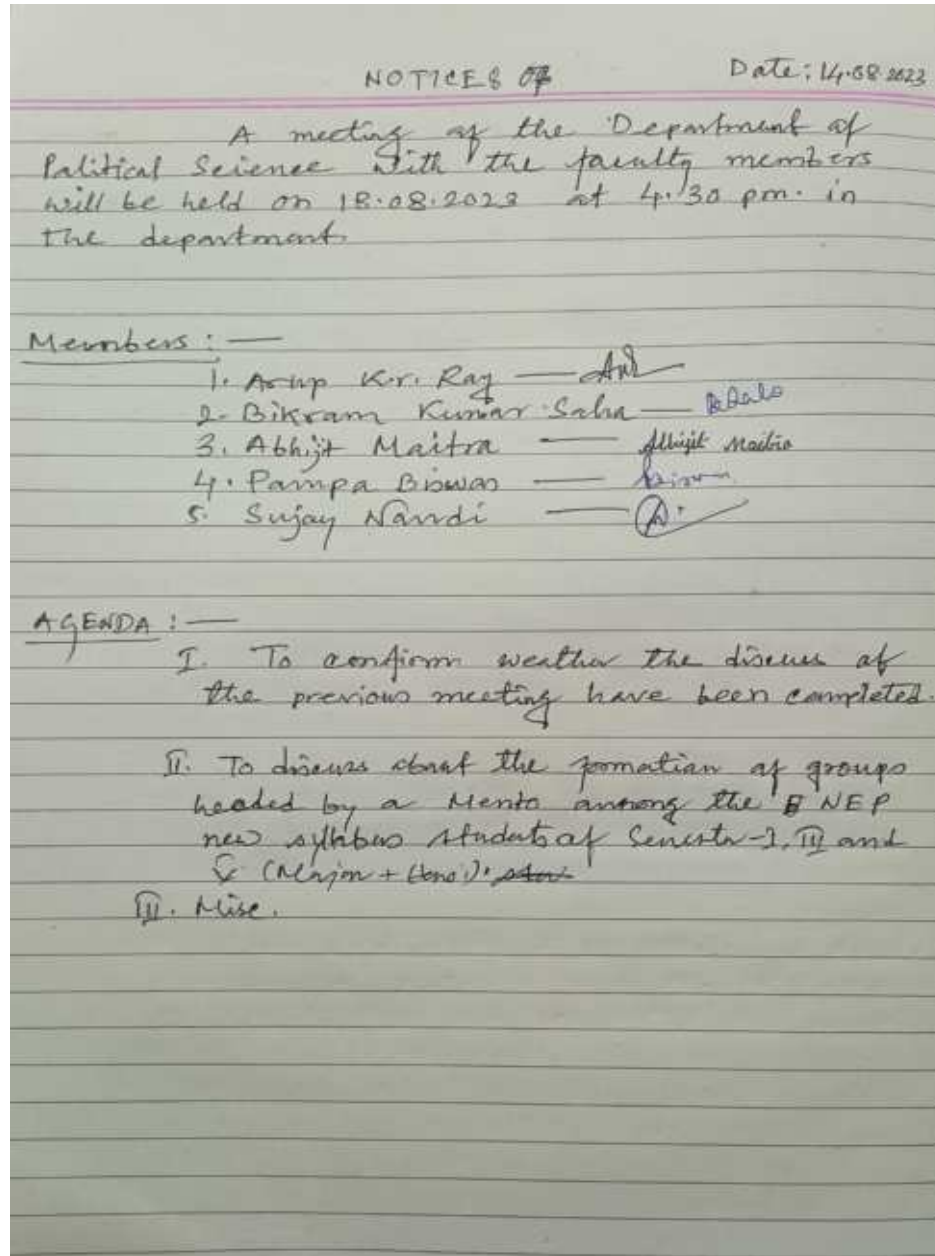 NOTICES Date: 14.08.2023
A meeting of the Department of
Political Science with the faculty members
will be held on 18.08.2023 at 4.30 pm. in
the department.
Members : —
1. Arup Kr. Ray —
2. Bikram Kumar Saha —
3. Abhijit Maitra — Abhijit Maitra
4. Pampa Biswas —
5. Sujay Nandi —
AGENDA : —
I. To confirm weather the discuss of
the previous meeting have been completed.
II. To discuss about the formation of groups
headed by a Mento among the NEP
new syllabus students of Semester-I, III and
(Major + Hons).
III. Misc.